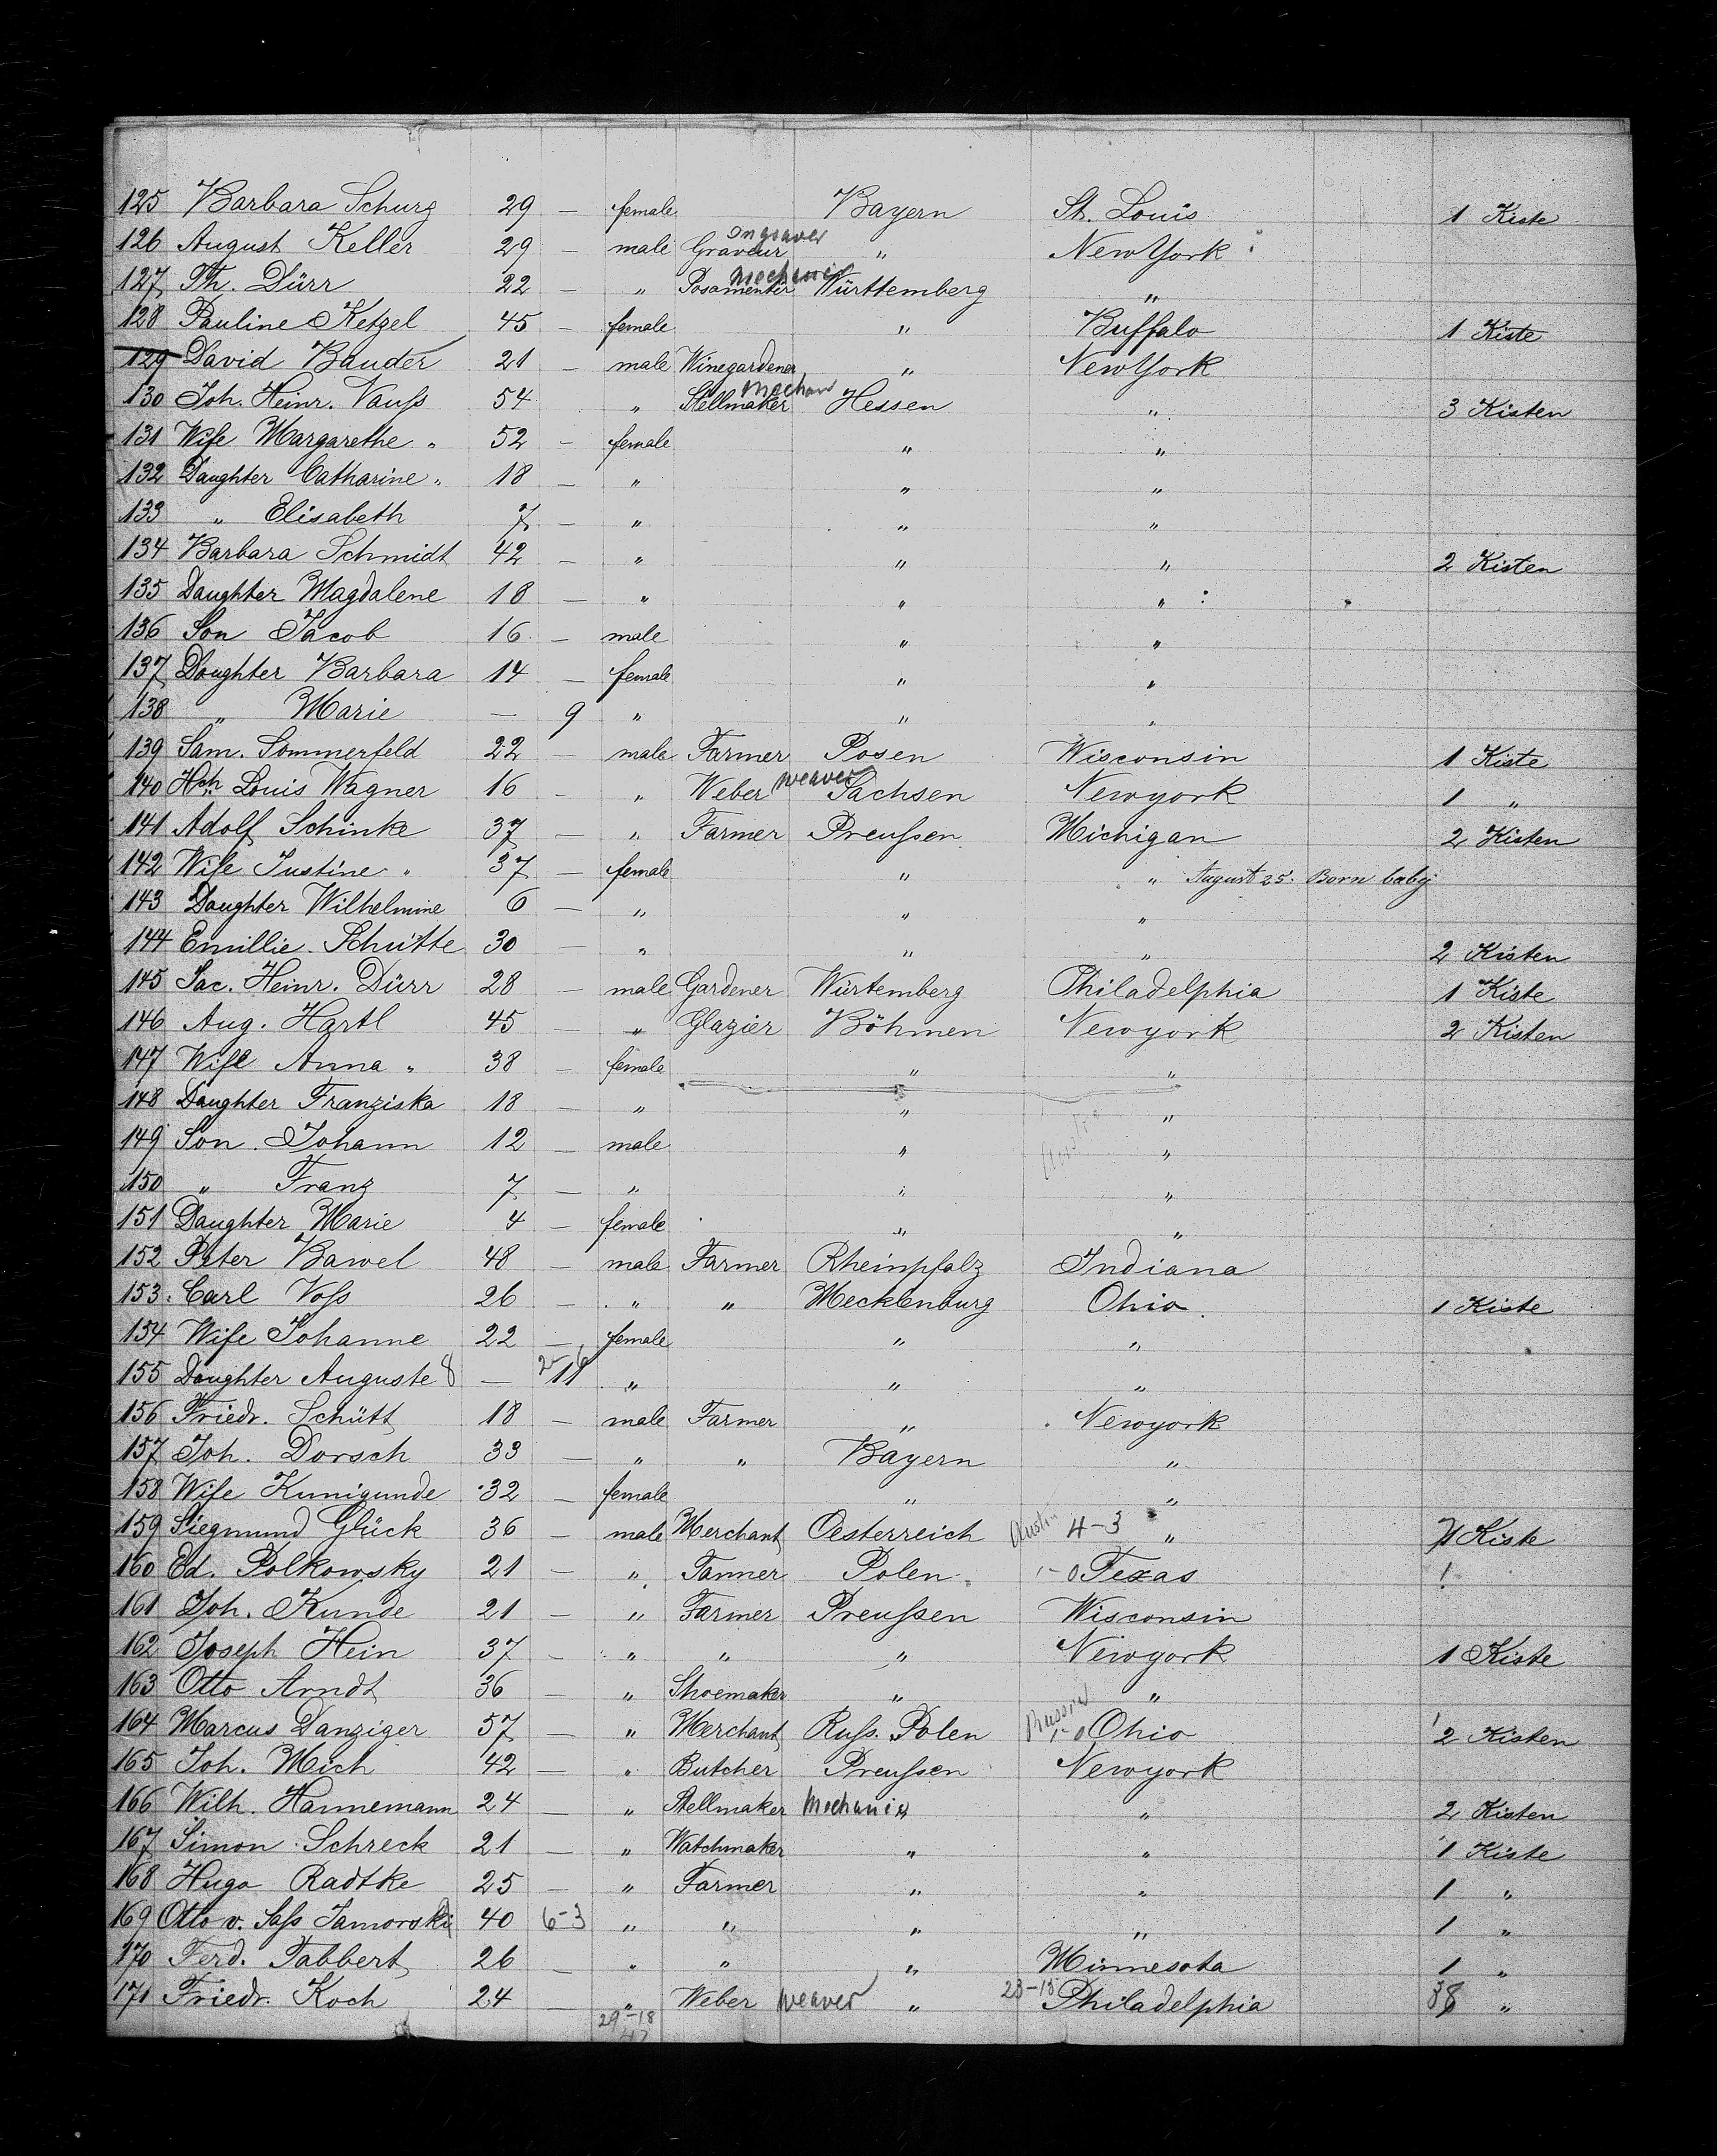 125 Barbara Schurg 29 — female Bayern St. Louis 1 Kiste
126 August Keller 29 — male Graveur Engraver " New York
127 Th. Dürr 22 — " Posamentier Mechanic Württemberg "
128 Pauline Ketzel 45 — female " Buffalo 1 Kiste
129 David Bauder 21 — male Winegardener " New York
130 Joh. Heinr. Vauß 54 " Stellmaker Mechan Hessen " 3 Kisten
131 Wife Margarethe " 52 — female " "
132 Daughter Catharine " 18 — " " "
133 " Elisabeth 7 — " " "
134 Barbara Schmidt 42 — " " " 2 Kisten
135 Daughter Magdalene 18 — " " "
136 Son Jacob 16 — male " "
137 Daughter Barbara 14 — female " "
138 " Marie — 9 " " "
139 Sam. Sommerfeld 22 — male Farmer Posen Wisconsin 1 Kiste
140 Hch. Louis Wagner 16 — " Weber weaver Sachsen Newyork 1 "
141 Adolf Schinke 37 — " Farmer Preußen Michigan 2 Kisten
142 Wife Justine " 37 — female " " August 25. Born baby
143 Daughter Wilhelmine 6 — " " "
144 Emillie Schütte 30 — " " " 2 Kisten
145 Jac. Heinr. Dürr 28 — male Gardener Würtemberg Philadelphia 1 Kiste
146 Aug. Hartl 45 — " Glazier Böhmen Newyork 2 Kisten
147 Wife Anna " 38 — female " "
148 Daughter Franziska 18 — " " "
149 Son Johann 12 — male " Austria "
150 " Franz 7 — " " "
151 Daughter Marie 4 — female " "
152 Peter Bawel 48 — male Farmer Rheinpfalz Indiana
153 Carl Voß 26 — " " Mecklenburg Ohio 1 Kiste
154 Wife Johanne 22 — female " "
155 Daughter Auguste 8 — 2-6 11 " " "
156 Friedr. Schütt 18 — male Farmer " Newyork
157 Joh. Dorsch 33 — " " Bayern "
158 Wife Kunigunde 32 — female " "
159 Siegmund Glück 36 — male Merchant Oesterreich Austria 4-3 " 1 Kiste
160 Ed. Polkowsky 21 — " Tanner Polen 1-0 Texas
161 Joh. Kunde 21 — " Farmer Preußen Wisconsin
162 Joseph Hein 37 — " " " Newyork 1 Kiste
163 Otto Arndt 36 — " Shoemaker " "
164 Marcus Danziger 57 — " Merchant Russ. Polen Russia 1-0 Ohio 2 Kisten
165 Joh. Mich 42 — " Butcher Preußen Newyork
166 Wilh. Hannemann 24 — " Stellmaker Mechanic " " 2 Kisten
167 Simon Schreck 21 — " Watchmaker " " 1 Kiste
168 Hugo Radtke 25 — " Farmer " " 1 "
169 Otto v. Saß Jamorski 40 6-3 " " " " 1 "
170 Ferd. Tabbert 26 — " " " Minnesota 1 "
171 Friedr. Koch 24 — " Weber weaver " 23-15 Philadelphia "
29-18
47